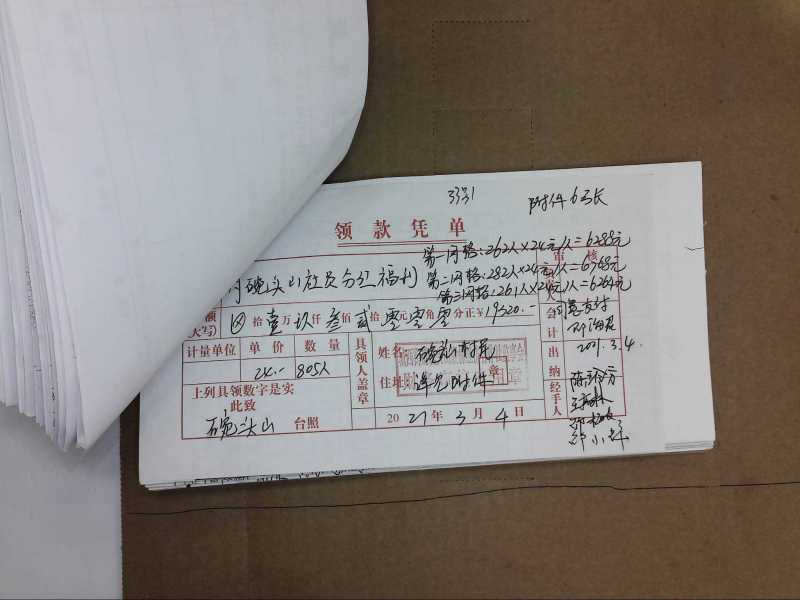 附件63张
领款凭单
第一网格:262人×24元/人=6288元
碗头山社员分红福利
第二网格:282人×24元/人=6768元
第三网格:261人×24元/人=6264元
审核人
额(大写) 拾壹万玖仟叁佰贰拾零元零角零分正¥19320.-
会计
同意支付
计量单位 单价 数量
24.- 805人
具领人盖章
姓名:碗头山村民
住址:详见附件
出纳
2021.3.4.
上列具领数字是实
此致
碗头山 台照
2021年3月4日
经手人